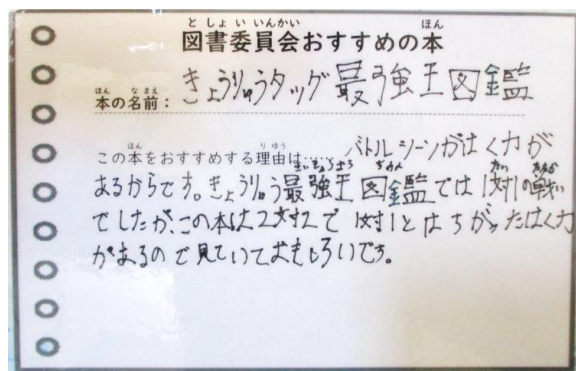 図書委員会おすすめの本
本の名前：きょうりゅうタッグ最強王図鑑
この本をおすすめする理由は……バトルシーンがはく力が
あるからです。きょうりゅう最強王図鑑では1対1の戦い
でしたが、この本は2対2で1対1とはちがったはく力
があるので見ていておもしろいです。